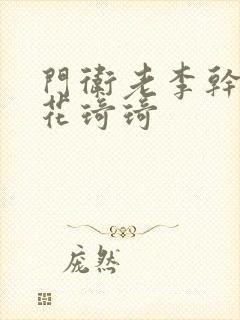 門衛老李幹
花琦琦
庞然